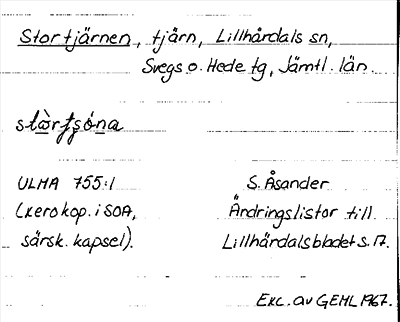 Stortjärnen, tjärn, Lillhärdals sn,
Svegs o. Hede tg, Jämtl. län.
ULMA 755:1 S. Åsander
(xerokop. i SOA, Ändringslistor till
särsk. kapsel). Lillhärdalsbladet s. 17.
Exc. av GEHL 1967.